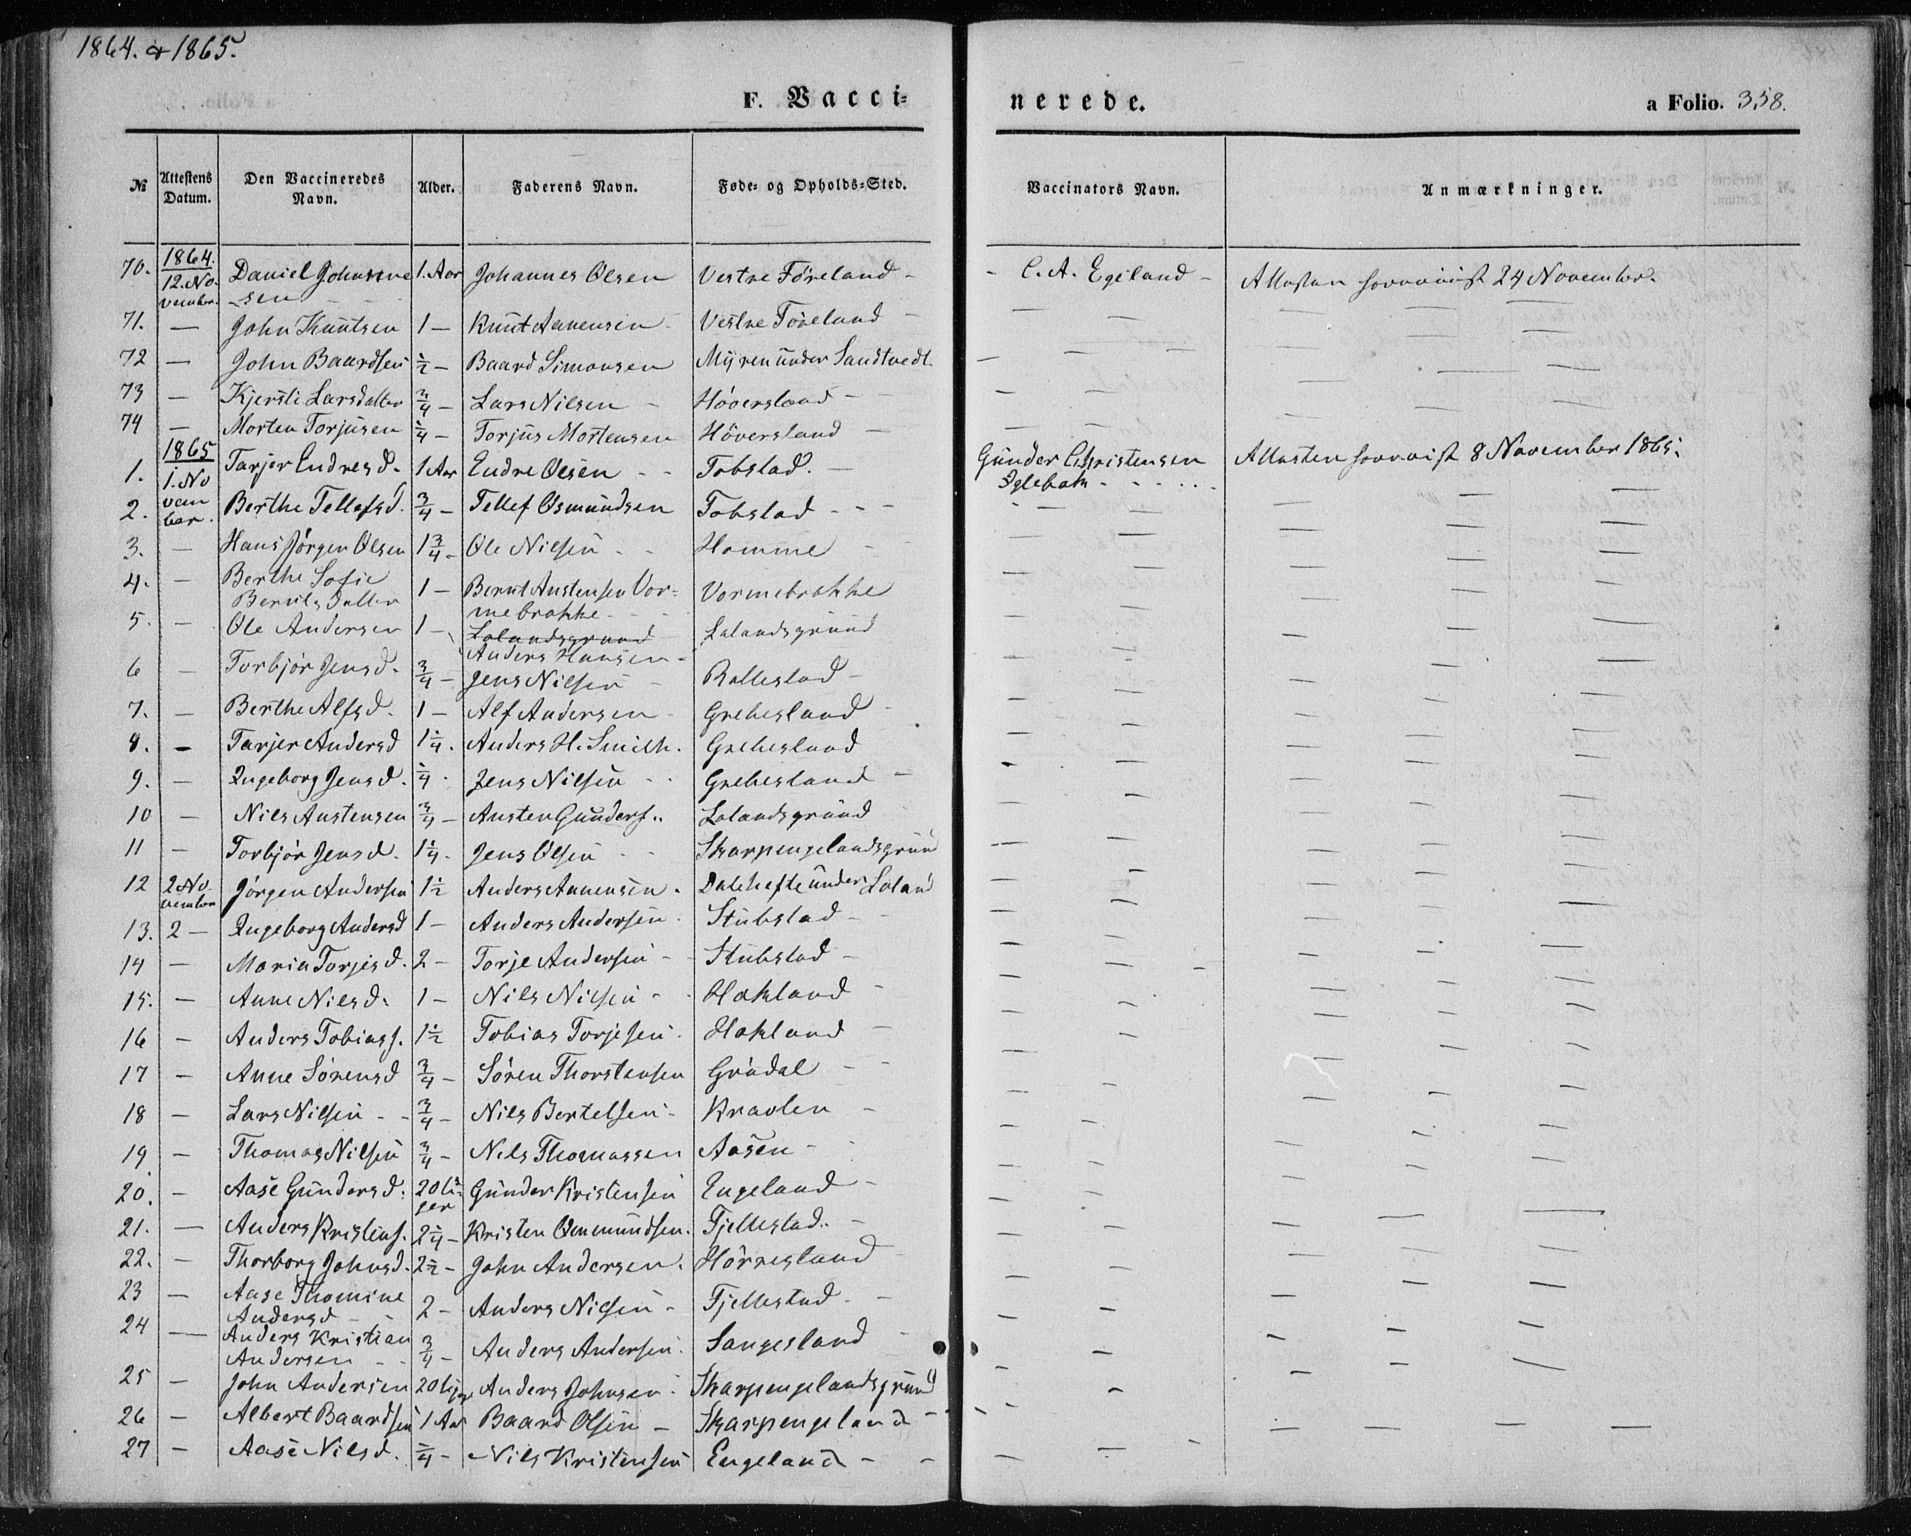 1864. & 1865.
F. Vacci=
nerede.
a Folio. 358.
№ Attestens Datum. Den Vaccineredes Navn. Alder. Faderens Navn. Føde- og Opholds-Sted. Vaccinators Navn. Anmærkninger.
1864.
70. 12. No- vember Daniel Johanne -sen 1. Aar Johannes Olsen Vestre Föreland - C. A. Egeland - 24 November.
71. — John Knutsen 1 — Knut Aanensen Vestre Föreland — — —
72 — John Baardsen ½ — Baard Simonsen Myren under Sandtvedt — — —
73 — Kjersti Larsdatter ¾ — Lars Nilsen Höversland — — —
74 — Morten Torjusen ¼ — Torjus Mortensen Höversland — — —
1865
1. 1. No vem ber. Tarjer Endresd. 1 Aar Endre Olsen Tobstad. Gunder Christensen Eglebak 8 November 1865.
2. Berthe Tellefsd. ¾ — Tellef Osmundsen Tobstad — — —
3. — Hans Jörgen Olsen 1¾ — Ole Nilsen Homme — — —
4. — Berthe Sofie Berntsdatter 1 — Bernt Austensen Vor= mebrokke Vormebrokke — — —
5. — Ole Andersen 1 — Lolandsgrund Anders Hansen Lolandsgrund — — —
6 — Torbjør Jensd. ¾ — Jens Nilsen Rallestad — — —
7. — Berthe Alfsd. 1 — Alf Andersen Grebesland — — —
8. — Tarjer Andersd 1¼. Anders H. Smith. Grebesland — — —
9. — Ingeborg Jensd. ¼ Jens Nilsen Grebesland — — —
10 — Nils Austensen ¾ — Austen Gunders.. Lolandsgrund — — —
11 — Torbjør Jensd. 1¼. Jens Olsen Skarpengelandsgrun — — —
12 2 No- vember Jörgen Andersen 1½ Anders Aanensen. Dalehefte under Loland — — —
13. 2 — Ingeborg Andersd 1 — Anders Andersen Stubstad — — —
14 — Maria Torjesd. 2 — Torje Andersen Stubstad — — —
15. — Anne Nilsd. 1 — Nils Nilsen Hakland — — —
16 — Anders Tobiass. 1½ Tobias Torjesen Hakland — — —
17 — Anne Sörensd ¾ — Sören Thorstensen Grödal — — —
18 — Lars Nilsen ¾ — Nils Bertelsen Kravlen — — —
19 — Thomas Nilsen ¾ — Nils Thomassen Aasen — — —
20. — Aase Gundersd. 20 U- ger Gunder Kristensen Engeland — — —
21. — Anders Kristens. 2¼ — Kristen Ommundsen. Fjellestad.. — — —
22. — Thorborg Johnsd. 2½ — John Andersen. Hörresland — — —
23 — Aase Thomine Andersd 2 — Anders Nilsen Fjellestad. — — —
24 — Anders Kristian Andersen ¾ — Anders Andersen. Sangesland — — —
25 — John Andersen 20 Uger Anders Johnsen Skarpengelandsgrund — — —
26 — Albert Baardsen 1 Aar Baard Olsen Skarpengeland — — —
27 — Aase Nilsd. ¼ — Nils Kristensen Engeland — — —